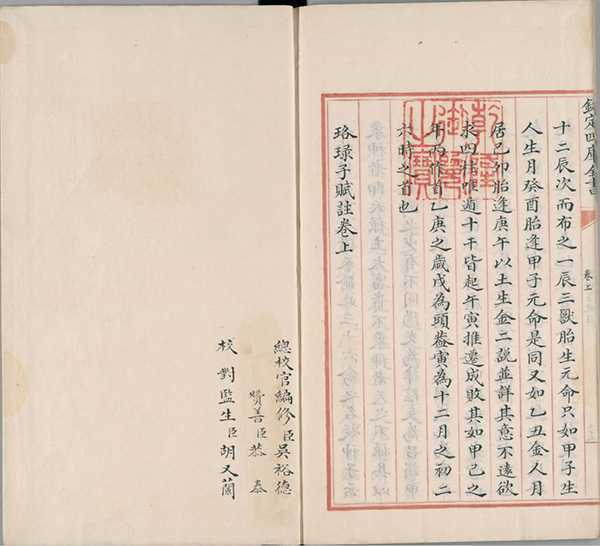 欽定四庫全書
卷上
十二辰次而布之一辰三獸胎生元命只如甲子生
人生月癸酉胎逢甲子元命是同又如乙丑金人月
居己卯胎逢庚午以土生金二說並詳其意不遠欲
求四柱惟遁十干皆起午寅推遷成敗其如甲己之
年丙作首乙庚之歲戊為頭葢寅為十二月之初二
六時之首也
珞琭子賦註卷上
乾隆御覽之寶
總校官編修臣吳裕德
贊善臣蔡泰
校對監生臣胡又蘭